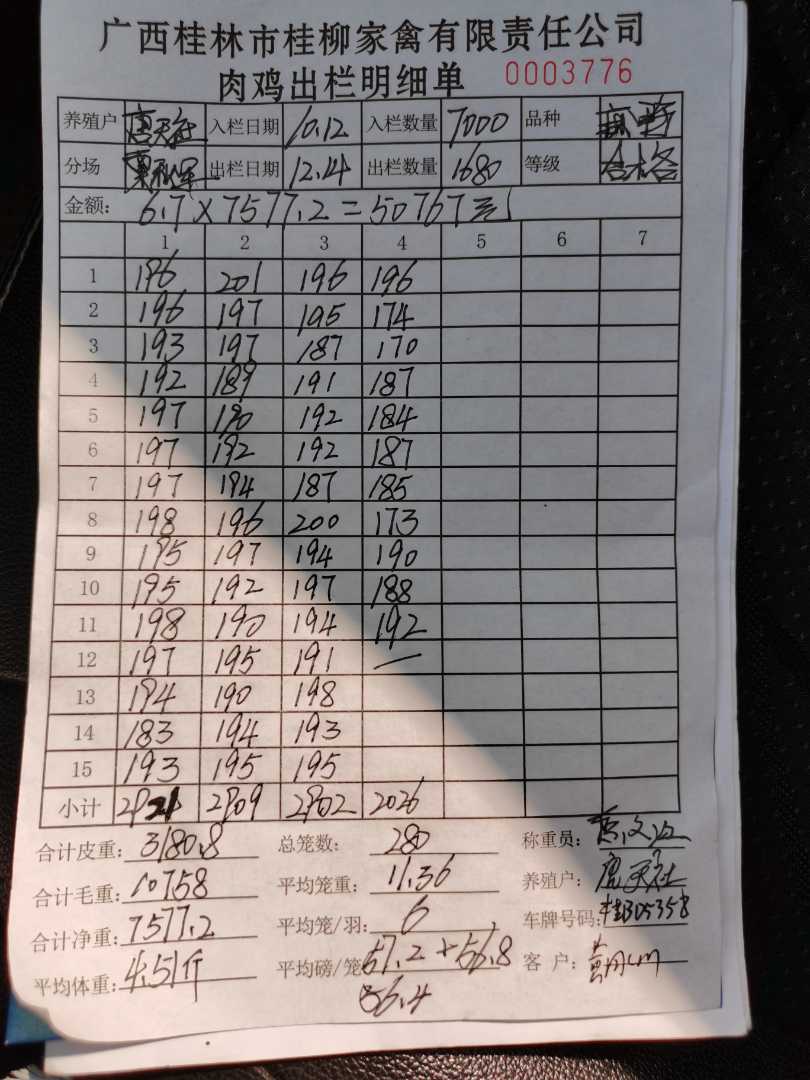 广西桂林市桂柳家禽有限责任公司
肉鸡出栏明细单 0003776
养殖户 唐天社 入栏日期 10.12 入栏数量 7000 品种
分场 出栏日期 12.14 出栏数量 1680 等级 合格
金额: 6.7×7577.2=50767
1 2 3 4 5 6 7
1 196 201 196 196
2 196 197 195 174
3 193 197 187 170
4 192 189 191 187
5 197 190 192 184
6 197 192 192 187
7 197 194 187 185
8 198 196 200 173
9 195 197 194 190
10 195 192 197 188
11 198 190 194 192
12 197 195 191 —
13 194 190 198
14 183 194 193
15 193 195 195
小计 2921 2909 2902 2026
合计皮重: 3180.8 总笼数: 280 称重员:
合计毛重: 10758 平均笼重: 11.36 养殖户: 唐天社
合计净重: 7577.2 平均笼/羽: 6 车牌号码: 桂B05358
平均体重: 4.51斤 平均磅/笼 57.2+56.8 客户:
56.4